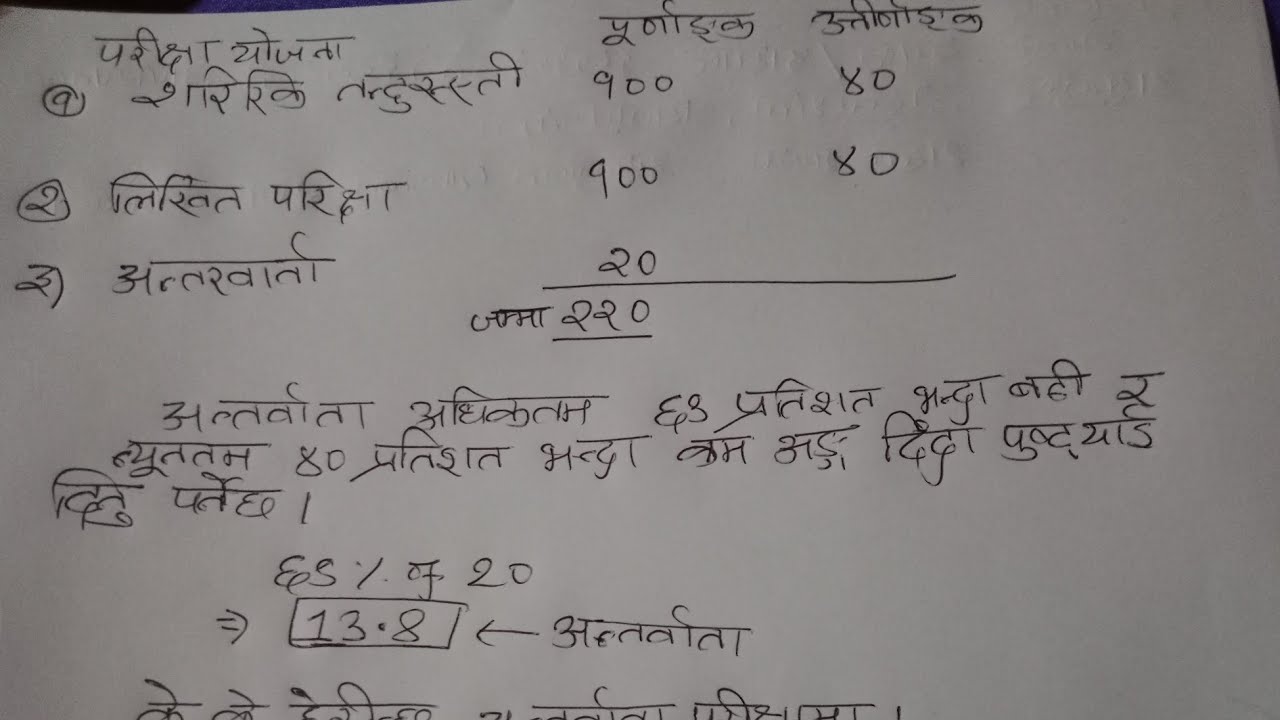 पूर्णाङ्क उत्तीर्णाङ्क
परीक्षा योजना
१) शारिरिक तन्दुरुस्ती १०० ४०
२) लिखित परिक्षा १०० ४०
३) अन्तरवार्ता २०
जम्मा २२०
अन्तर्वाता अधिकतम ६९ प्रतिशत भन्दा बढी र
न्यूनतम ४० प्रतिशत भन्दा कम अङ्क दिंदा पुष्ट्याई
दिनु पर्नेछ ।
६९% of 20
⇒ 13.8 ← अन्तर्वाता
के के हेरीन्छ अन्तर्वाता परीक्षामा ।